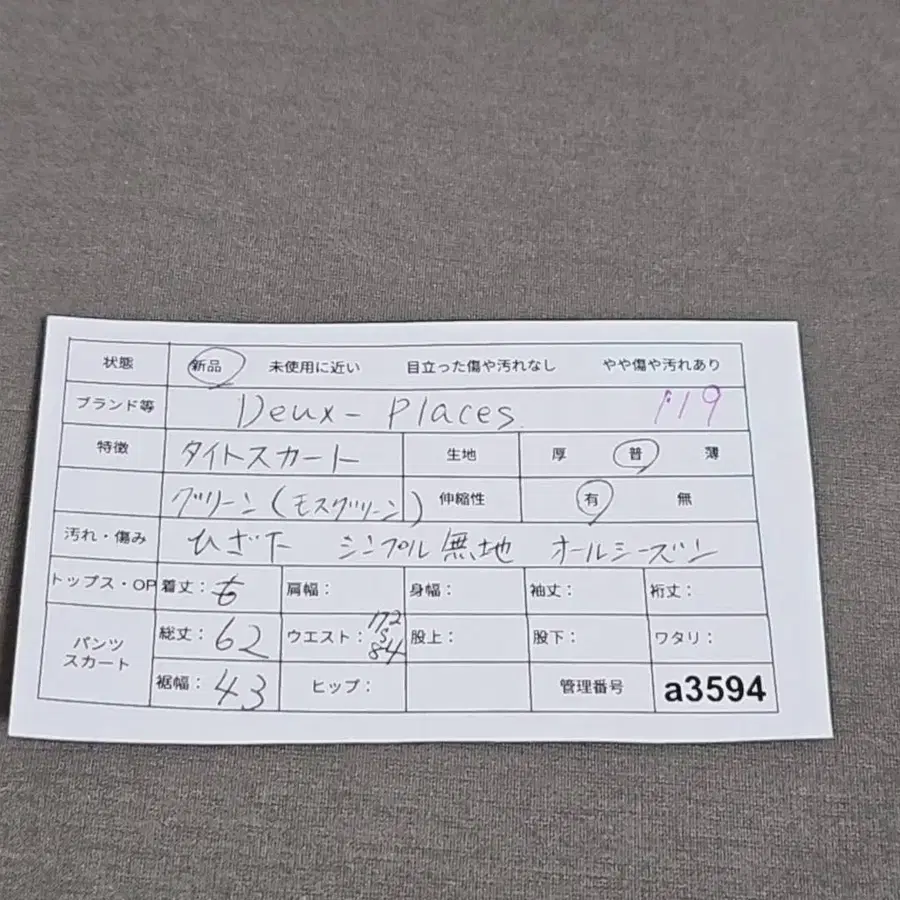 状態 新品 未使用に近い 目立った傷や汚れなし やや傷や汚れあり
ブランド等 Deux-Places 119
特徴 タイトスカート 生地 厚 普 薄
グリーン(モスグリーン) 伸縮性 有 無
汚れ・傷み ひざ下 シンプル無地 オールシーズン
トップス・OP 着丈: 肩幅: 身幅: 袖丈: 裄丈:
パンツ スカート 総丈: 62 ウエスト: 72 S 84 股上: 股下: ワタリ:
裾幅: 43 ヒップ: 管理番号 a3594